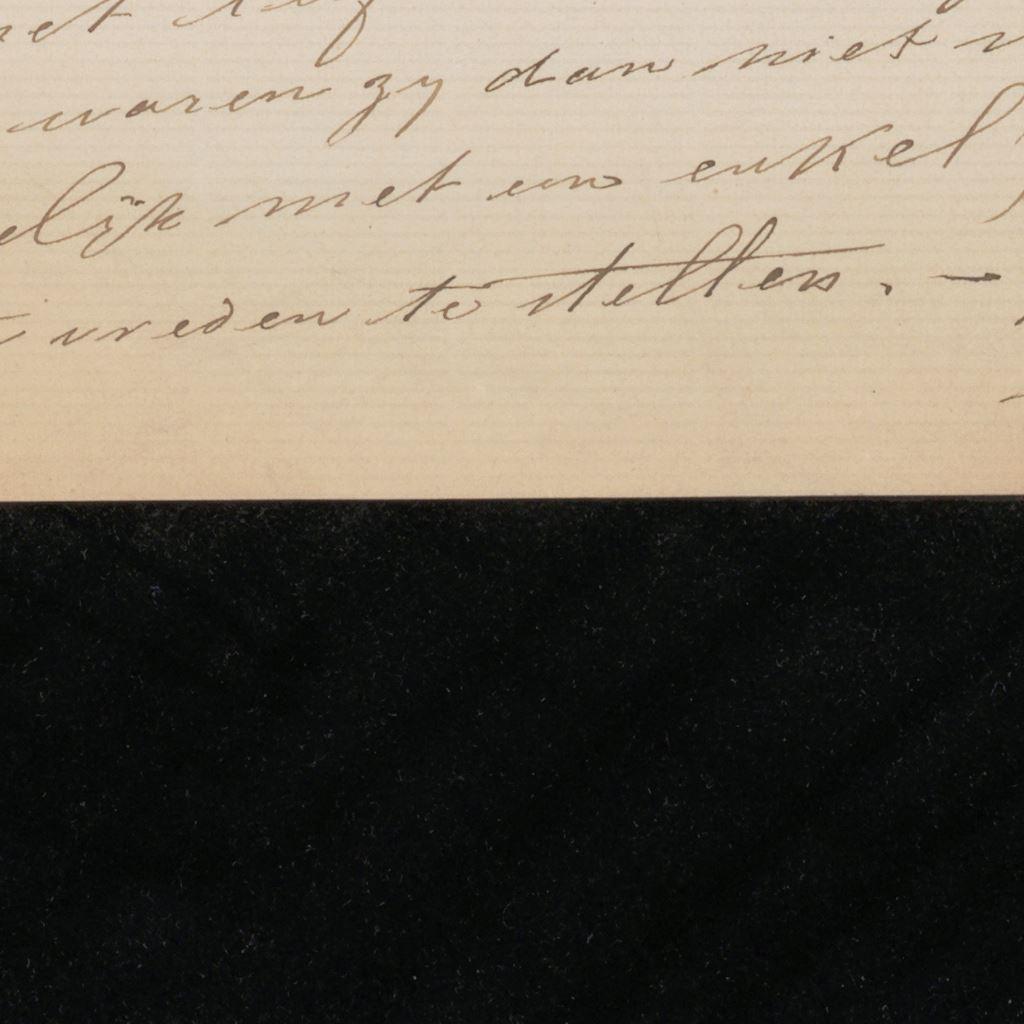 waren zy dan niet
elijk met een enkel
vreden te stellen. —